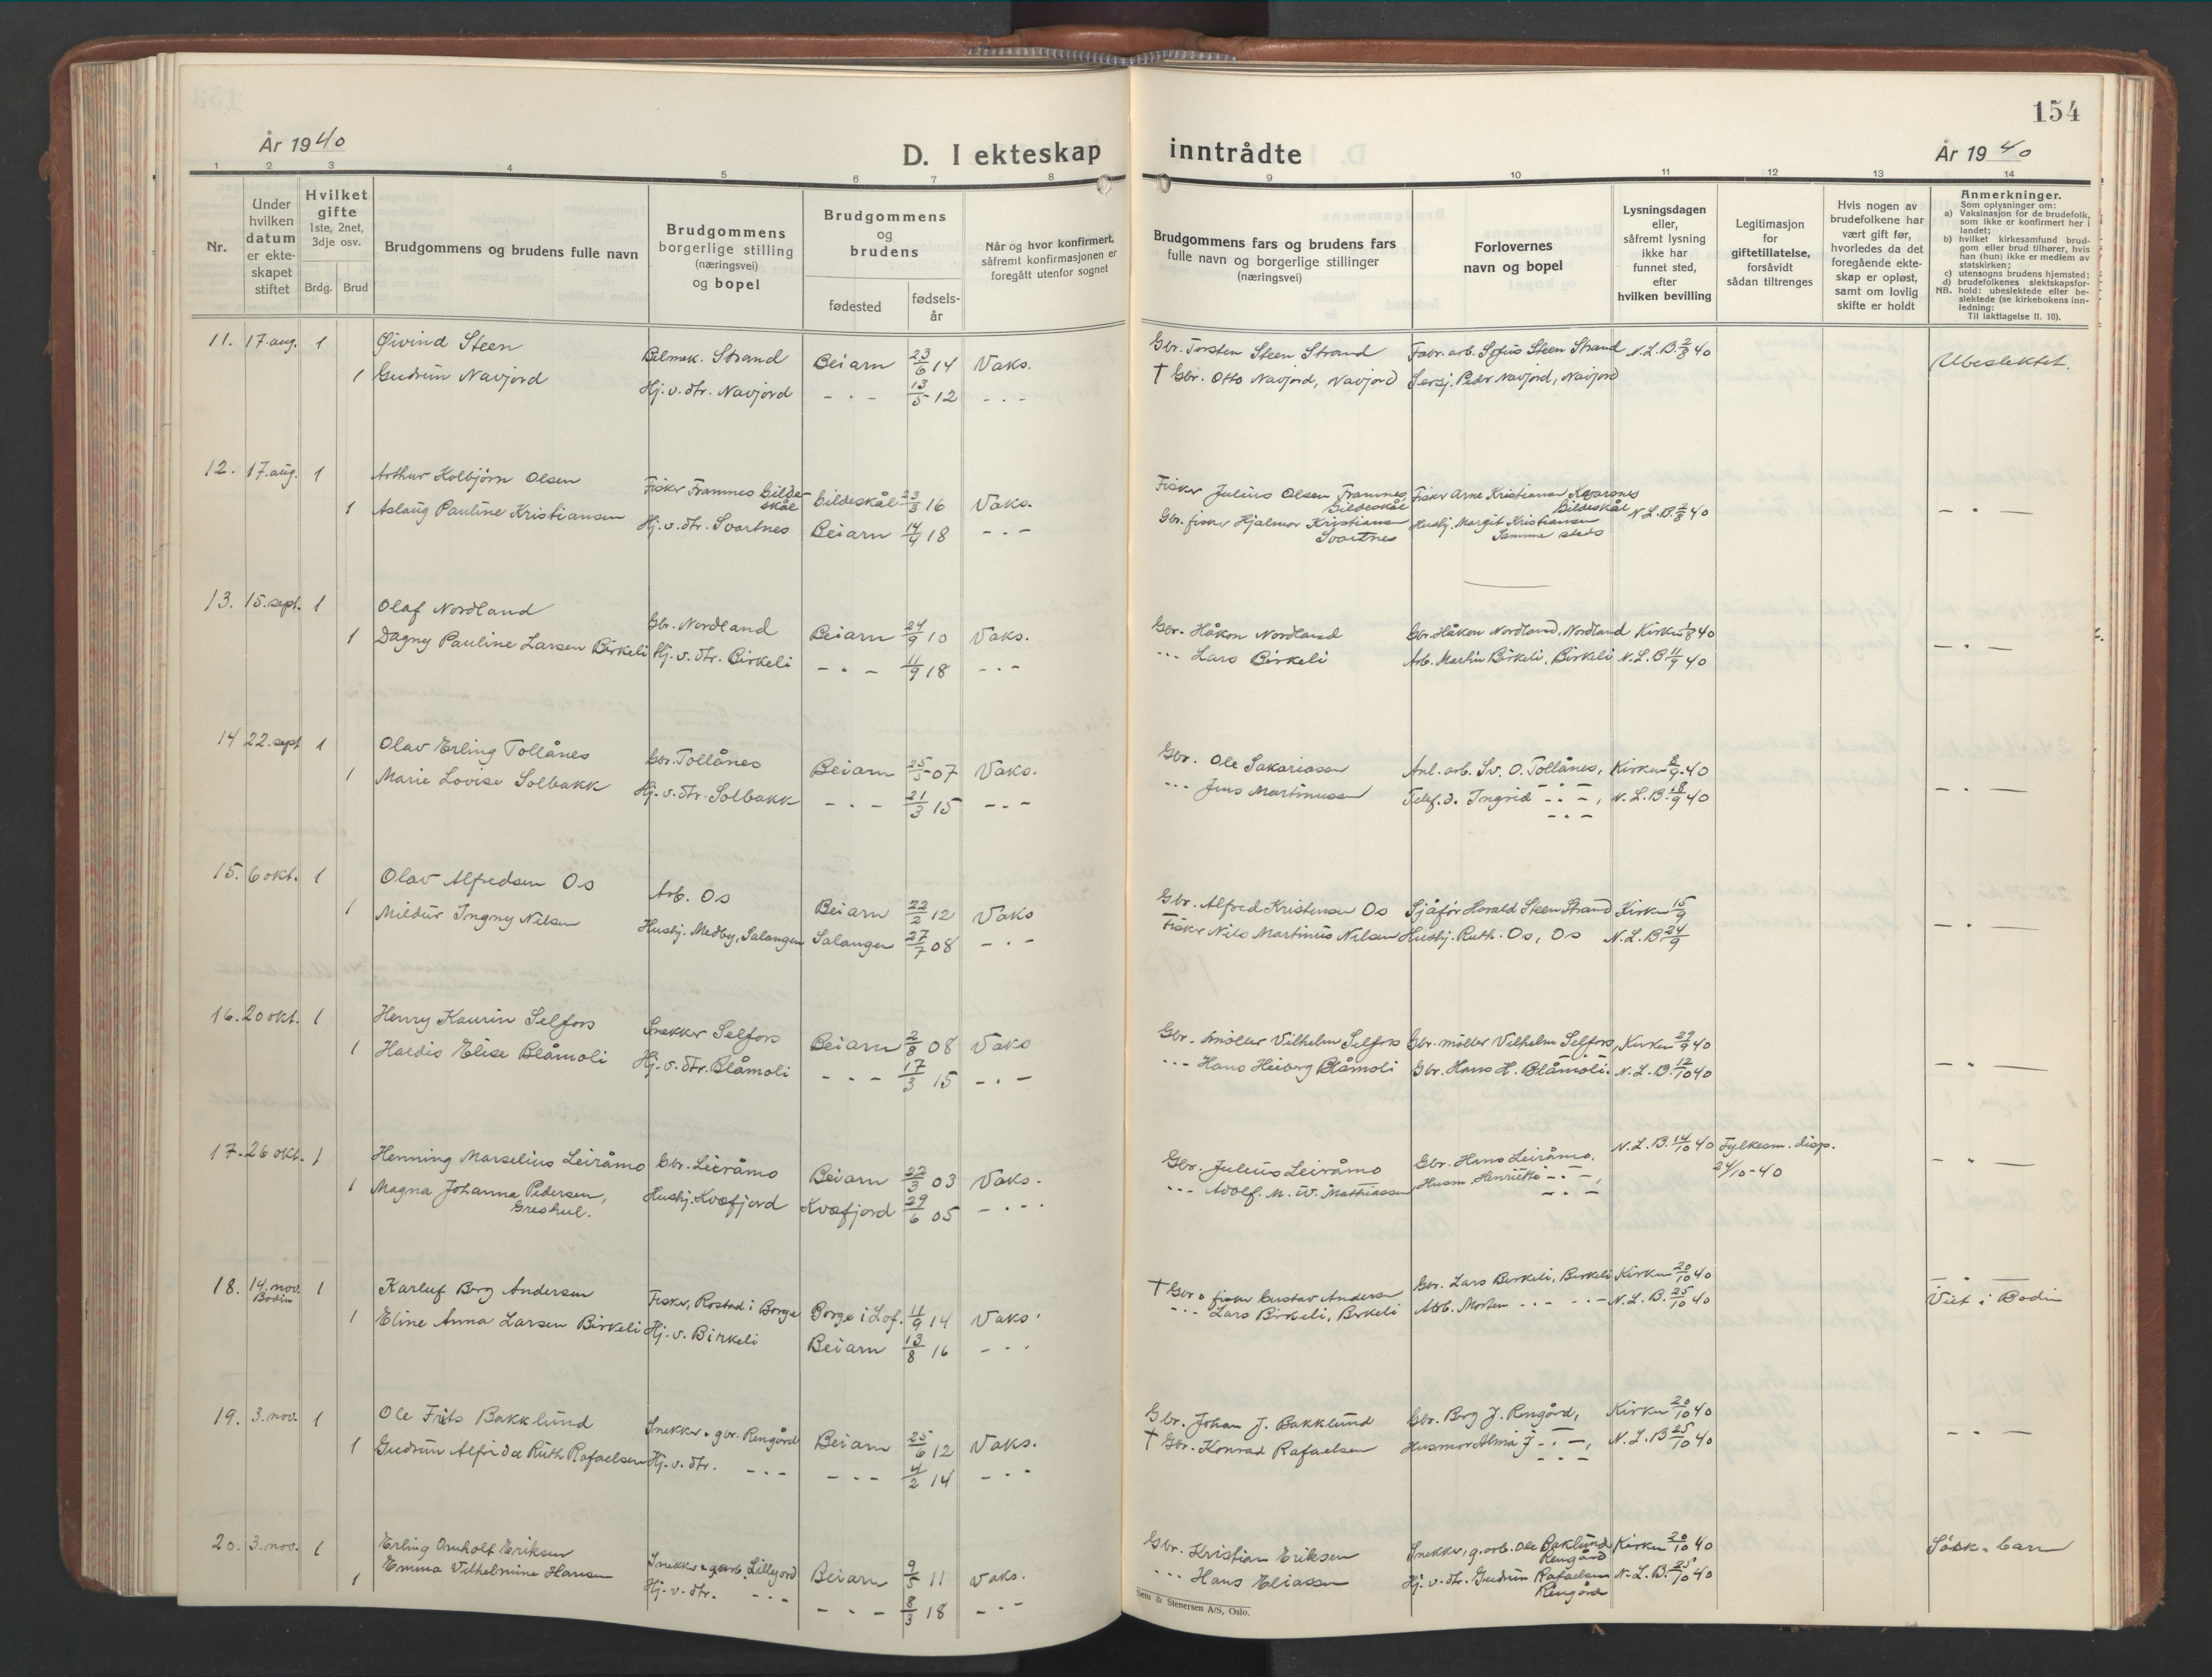 154
År 1940
D. I ekteskap inntrådte
År 1940
1 2 3 4 5 6 7 8 9 10 11 12 13 14
Nr.
Under hvilken datum er ekteskapet stiftet
Hvilket gifte 1ste, 2net, 3dje osv.
Brdg. Brud
Brudgommens og brudens fulle navn
Brudgommens borgerlige stilling (næringsvei) og bopel
Brudgommens og brudens
fødested
fødsels-år
Når og hvor konfirmert, såfremt konfirmasjonen er foregått utenfor sognet
Brudgommens fars og brudens fars fulle navn og borgerlige stillinger (næringsvei)
Forlovernes navn og bopel
Lysningsdagen eller, såfremt lysning ikke har funnet sted, efter hvilken bevilling
Legitimasjon for giftetillatelse, forsåvidt sådan tiltrenges
Hvis nogen av brudefolkene har vært gift før, hvorledes da det foregående ekteskap er opløst, samt om lovlig skifte er holdt
Anmerkninger.
Som oplysninger om:
a) Vaksinasjon for de brudefolk, som ikke er konfirmert her i landet;
b) hvilket kirkesamfund brudgom eller brud tilhører, hvis han (hun) ikke er medlem av statskirken;
c) utensogns brudens hjemsted;
d) brudefolkenes slektskapsforhold: ubeslektede eller beslektede (se kirkebokens innledning:
NB. Til iakttagelse II. 10).
11. 17. aug. 1 Øivind Steen Bilmek. Strand Beiarn 23/6 14 Vaks. Gbr. Torsten Steen Strand Fabr. arb. Sofus Steen Strand N.L.B. 2/8 40 Ubeslektet.
1 Gudrun Navjord Hj.v.dtr. Navjord - . - 13/5 12 - . - † Gbr. Otto Navjord, Navjord Sersj. Peder Navjord, Navjord
12. 17. aug. 1 Arthur Kolbjørn Olsen Fisker Framnes Gildeskål Gildeskål 23/3 16 Vaks. Fisker Julius Olsen Framnes, Gildeskål Fisker Arne Kristiansen Kvarsnes Gildeskål N.L.B. 2/8 40 - . -
1 Aslaug Pauline Kristiansen Hj.v.dtr. Svartnes Beiarn 14/4 18 - . - Gbr. fisker Hjalmar Kristiansen Svartnes Husbj. Margit Kristiansen Samme steds
13. 15. sept. 1 Olaf Nordland Gbr. Nordland Beiarn 24/9 10 Vaks. Gbr. Håkon Nordland Gbr. Håkon Nordland, Nordland Kirken 1/8 40 - . -
1 Dagny Pauline Larsen Birkeli Hj.v.dtr. Birkeli - . - 11/9 18 - . - - . - Lars Birkeli Arb. Martin Birkeli, Birkeli N.L.B. 11/9 40
14 22. sept 1 Olav Erling Tollånes Gbr. Tollånes Beiarn 25/5 07 Vaks. Gbr. Ole Sakariasen Anl. arb. Sv. O. Tollånes, - . - Kirken 8/9 40 - . -
1 Marie Lovise Solbakk Hj.v.dtr. Solbakk - . - 21/3 15 - . - - . - Jens Martinussen Telef. d. Ingrid - . -, - . - N.L.B. 18/9 40
15. 6 okt. 1 Olav Alfredsen Os Arb. Os Beiarn 22/2 12 Vaks Gbr. Alfred Kristensen Os Sjåfør Harald Steen Strand Kirken 15/9 - . -
1 Mildur Ingny Nilsen Husbj. Medby, Salangen Salangen 27/7 08 - . - Fisker Nils Martinus Nilsen Husbj. Ruth Os, Os N.L.B 24/9
16. 20 okt. 1 Henry Kaurin Selfors Snekker Selfors Beiarn 2/8 08 Vaks Gbr. møller Vilhelm Selfors Gbr. møller Vilhelm Selfors, - . - Kirken 29/9 40 - . -
1 Haldis Elise Blåmoli Hj.v.dtr. Blåmoli - . - 17/3 15 - . - - . - Hans Heiberg Blåmoli Gbr. Hans H. Blåmoli. N.L.B. 12/10 40
17. 26 okt. 1 Henning Marselius Leiråmo Gbr. Leiråmo Beiarn 22/3 03 Vaks. Gbr. Julius Leiråmo Gbr. Hans Leiråmo, - . - N.L.B. 14/10 40 Fylkesm. disp. 24/10-40 - . -
1 Magna Johanna Pedersen, Greshul. Husbj. Kvæfjord Kvæfjord 29/6 05 - . - - . - Adolf. M. W. Mathiassen Husm. Henriette - . -, - . -
18. 14. nov. Bodin 1 Karluf Berg Andersen Fisker, Rostad i Borge Borge i Lof. 11/9 14 Vaks. † Gbr. o fisker Gustav Andersen Gbr. Lars Birkeli, Birkeli Kirken 20/10 40 - . - Viet i Bodin
1 Eline Anna Larsen Birkeli Hj.v. Birkeli Beiarn 13/8 16 - . - - . - Lars Birkeli, Birkeli Arb. Morten - . - - . - N.L.B. 25/10 40
19. 3. nov. 1 Ole Frits Bakklund Snekker - gbr. Rengård Beiarn 25/6 12 Vaks. Gbr. Johan J. Bakklund Gbr. Berg J. Rengård, - . - Kirken 20/10 40 - . -
1 Gudrun Alfrida Ruth Rafaelsen Hj.v.dtr. - . - - . - 4/2 14 - . - † Gbr. Konrad Rafaelsen Husmor Alma J - . -, - . - N.L.B 25/10 40
20. 3. nov. 1 Erling Omholt Eriksen Snekker - garb. Lillejord Beiarn 9/5 11 Vaks. Gbr. Kristian Eriksen Snekker, g.arb. Ole Baklund Rengård Kirken 20/10 40 Søsk. barn
1 Emma Vilhelmine Hansen Hj.v.dtr. - . - - . - 8/3 18 - . - - . - Hans Eliassen Hj.v.dtr. Gudrun Rafaelsen Rengård N.L.B. 25/10 40
Sem & Stenersen A/S, Oslo.